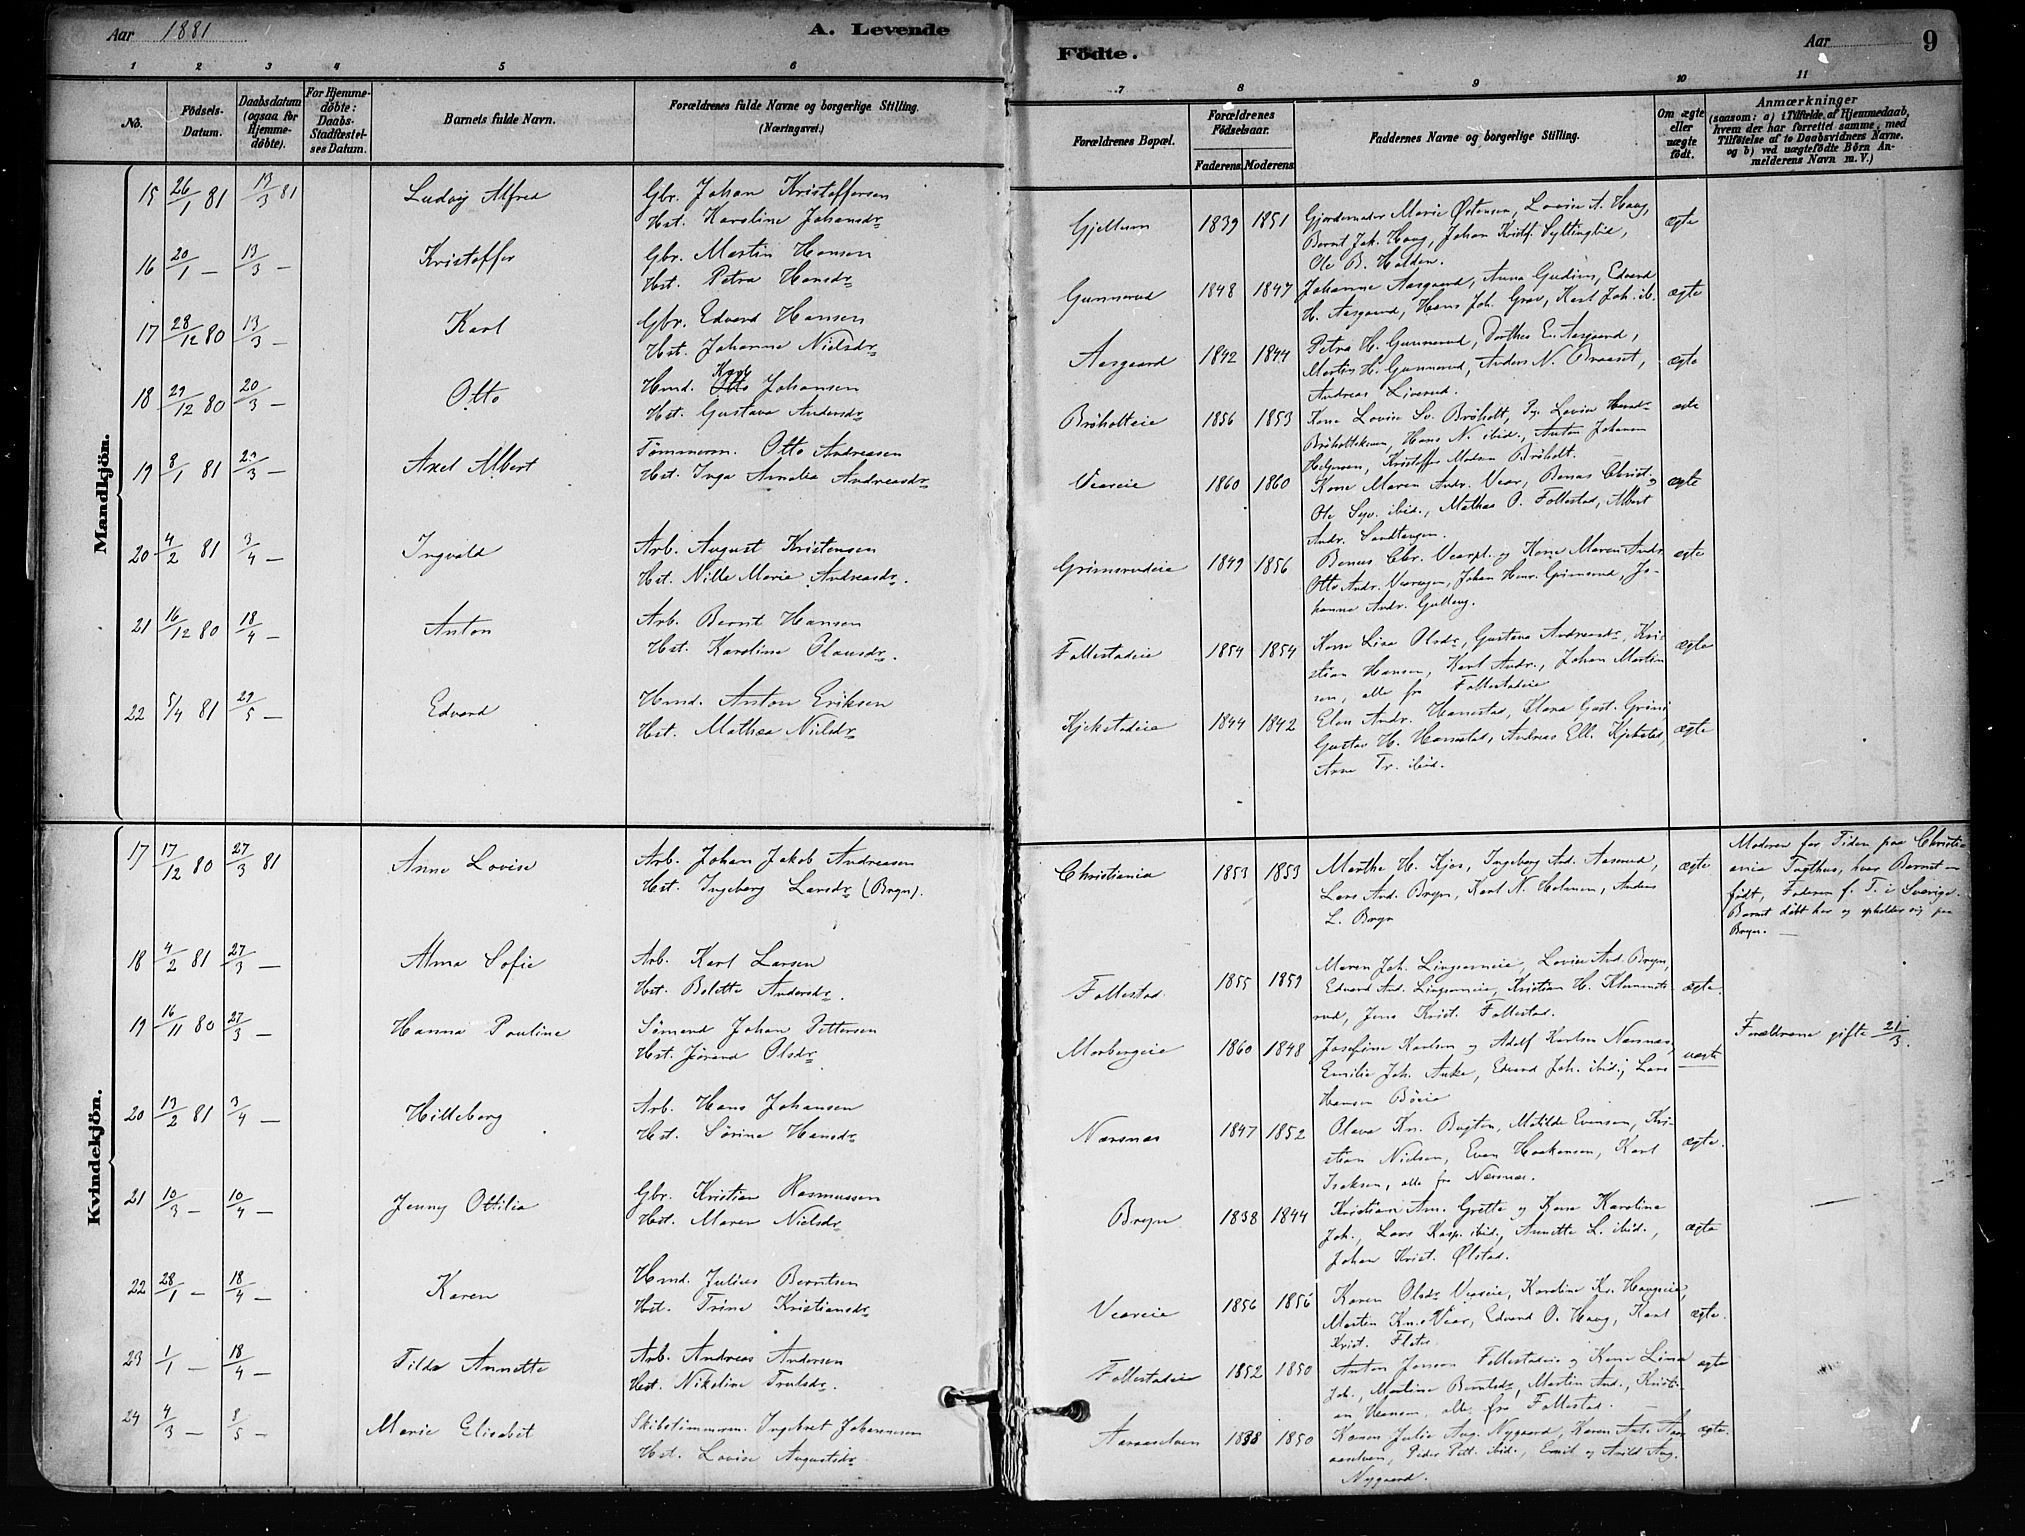 Aar 1881
A. Levende
Födte.
Aar
9
1 2 3 4 5 6 7 8 9 10 11
No.
Födsels-Datum.
Daabsdatum (ogsaa for Hjemmedöbte).
For Hjemmedöbte: Daabs-Stadfæstelses Datum.
Barnets fulde Navn.
Forældrenes fulde Navne og borgerlige Stilling. (Næringsvei.)
Forældrenes Bopæl.
Forældrenes Födselsaar.
Faderens. Moderens.
Faddernes Navne og borgerlige Stilling.
Om ægte eller uægte födt.
Anmærkninger
(saasom: a) i Tilfælde af Hjemmedaab, hvem der har forrettet samme, med Tilföielse af to Daabsvidners Navne. og b) ved uægtefödte Börn Anmelderens Navn m. V.)
Mandkjön.
15 26/1 81 13/3 81 Ludvig Alfred Gbr. Johan Kristoffersen
Hst. Karoline Johansdr
Gjellum 1839 1851 Gjordemoder Marie Østensen, Lovise A. Haug,
Bernt Joh. Haug, Johan Kristf. Syltingli,
Ole B. Holden.
ægte
16 20/1 — 13/3 — Kristoffer Gbr. Martin Hansen
Hst. Petra Hansdr
Gunnerud 1848 1847 Johanne Aasgaard, Anna Gudim, Edvard
H. Aasgaard, Hans Joh. Grav, Karl Joh. ib.
ægte
17 28/12 80 13/3 — Karl Gbr. Edvard Hansen
Hst. Johanne Nielsdr
Aasgaard 1842 1844 Petra H. Gunnerud, Dorthea E. Aasgaard,
Martin H. Gunnerud, Anders N. Braaset,
Andreas Liverud.
ægte
18 29/12 80 20/3 — Otto Hmd. Otto Johansen
Hst. Gustava Andersdr
Bröholteie 1856 1853 Kone Lovise Sv. Bröholt, Pg. Lovise Hansdr
Bröholteie, Hans N. ibid., Anton Johansen
Helgesen, Kristoffer Madsen Bröholt.
ægte
19 8/1 81 20/3 — Axel Albert Tömmerm. Otto Andreasen
Hst. Inga Amalia Andreasdr
Veareie 1860 1860 Kone Maren Andr. Vear, Bonas Christ. og
Ole Syv. ibid., Mathea O. Follestad, Albert
Andr. Sandtangen.
ægte
20 4/2 81 3/4 — Ingvald Arb. August Kristensen
Hst. Nille Marie Andreasdr.
Grimsrudeie 1849 1856 Bonas Chr. Vearpl. og Kone Maren Andr.
Otto Andr. Vearegen, Johan Henr. Grimsrud, Jo-
hanne Andr. Gulleng.
ægte
21 16/12 80 18/4 — Anton Arb. Bernt Hansen
Hst. Karoline Olausdr.
Follestadeie 1854 1854 Kone Lisa Olsdr, Gustava Andreasdr, Kri-
stian Hansen, Karl Andr., Johan Martin
sen, alle fr. Follestadeie
ægte
22 5/4 81 29/5 — Edvard Hmd. Anton Eriksen
Hst. Mathea Nielsdr
Kjekstadeie 1844 1842 Elen Andr. Hanestad, Klara Gust. Grini,
Gustav H. Hanestad, Andreas Ell. Kjekstad,
Arne Tr. ibid.
ægte
Kvindekjön.
17 17/12 80 27/3 81 Anne Lovise Arb. Johan Jakob Andreasen
Hst. Ingeborg Larsdr (Bryn).
Christiania 1853 1853 Marthe H. Kjos, Ingeborg And. Aaserud,
Lars And. Bryn, Karl N. Holmen, Anders
L. Bryn
ægte
Moderen for Tiden paa Christi-
ania Tugthus, hvor Barnet er
født, Faderen f. T. i Sverige.
Barnet döbt her og opholder sig paa
Bryn. —
18 4/2 81 27/3 — Alma Sofie Arb. Karl Larsen
Hst. Bolette Andersdr.
Follestad. 1855 1859 Maren Joh. Lingsomeie, Lovise And. Bryn,
Edvard And. Lingsomeie, Kristian H. Klemmets
rud, Jens Krist. Follestad.
ægte.
19 16/11 80 27/3 — Hanna Pauline Sömand Johan Pettersen
Hst. Jörand Olsdr
Morbergeie 1860 1848 Josefine Karlsen og Adolf Karlsen Nærsnæs,
Emilie Joh. Auke, Edvard Joh. ibid., Lars
Hansen Böeie
uægte
Forældrene gifte 21/3.
20 13/2 81 3/4 — Hilleborg Arb. Hans Johansen
Hst. Sörine Hansdr
Nærsnæs 1847 1852 Olava Kr. Bugten, Matilde Evensen, Kri-
stian Nielsen, Even Haakensen, Karl
Isaksen, alle fr. Nærsnæs.
ægte.
21 10/3 — 10/4 — Jenny Ottilia Gbr. Kristian Rasmussen
Hst. Maren Nielsdr
Bryn. 1838 1844 Kristian Am. Grette og Kone Karoline
Joh., Lars Kasp. ibid., Annette L. ibid.,
Johan Krist. Ølstad.
ægte
22 28/1 — 18/4 — Karen Hmd. Julius Berntsen
Hst. Trine Kristiansdr
Veareie 1856 1856 Karen Olsdr Veareie, Karoline Kr. Haugeie,
Martin Kr. Vear, Edvard O. Haug, Karl
Krist. Flotes.
ægte.
23 1/1 — 18/4 — Tilda Annette Arb. Andreas Andersen
Hst. Nikoline Trulsdr.
Follestadeie 1852 1850 Anton Jensen Follestadeie og Kone Lina
Joh., Martine Berntsdr, Martin And., Kristi-
an Hansen, alle fra Follestad.
ægte
24 4/3 — 8/5 — Marie Elisabet Skibstömmerm. Ingebret Johannesen
Hst. Lovise Augustsdr
Aaraaselven 1838 1850 Karen Julie Aug. Nygaard, Karen Ants. Aar-
aaselven, Peder Pett. ibid., Emil og Arild Aug.
Nygaard.
ægte.